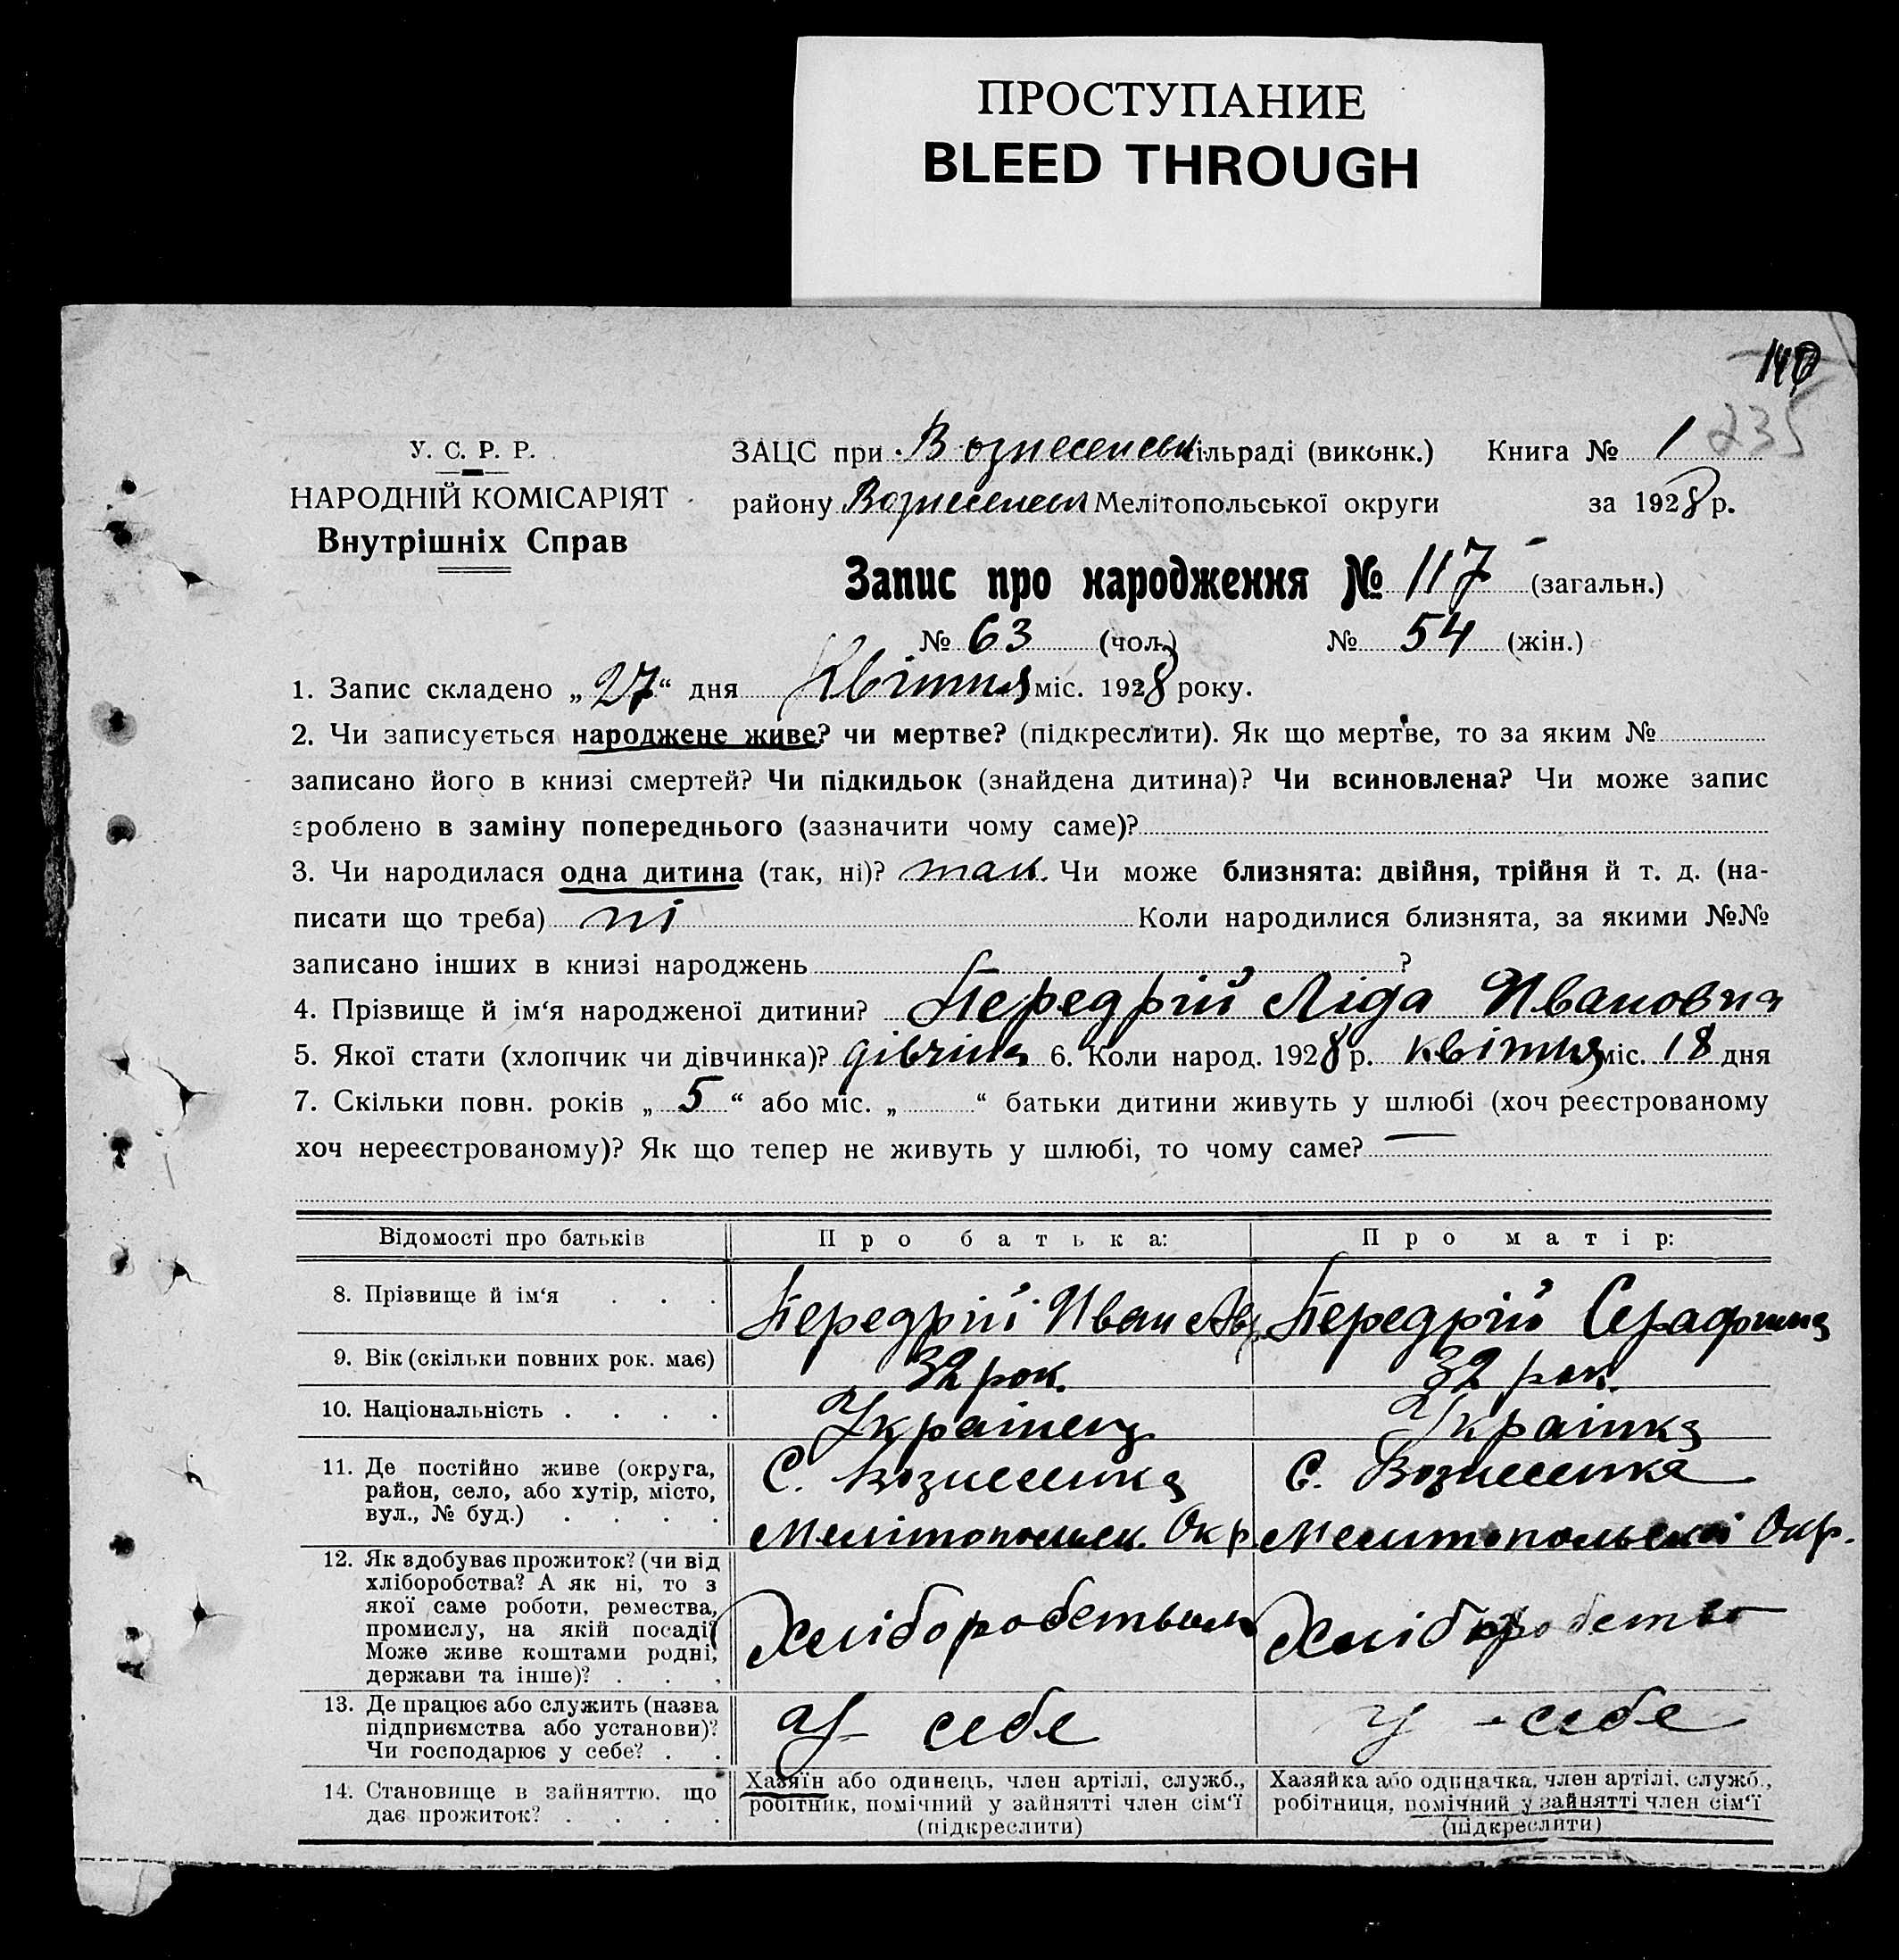 ПРОСТУПАНИЕ
BLEED THROUGH
140
235
У. С. Р. Р.
НАРОДНІЙ КОМІСАРІЯТ
Внутрішніх Справ
ЗАЦС при Вознесенськ сільраді (виконк.) Книга № 1
району Вознесенськ Мелітопольської округи за 1928 р.
Запис про народження № 117 (загальн.)
№ 63 (чол.) № 54 (жін.)
1. Запис складено „27“ дня Квітня міс. 1928 року.
2. Чи записується народжене живе? чи мертве? (підкреслити). Як що мертве, то за яким №
записано його в книзі смертей? Чи підкидьок (знайдена дитина)? Чи всиновлена? Чи може запис
зроблено в заміну попереднього (зазначити чому саме)?
3. Чи народилася одна дитина (так, ні)? так. Чи може близнята: двійня, трійня й т. д. (на-
писати що треба) ні Коли народилися близнята, за якими №№
записано інших в книзі народжень ?
4. Прізвище й ім‘я народженої дитини? Передрій Ліда Ивановна
5. Якої стати (хлопчик чи дівчинка)? дівчина 6. Коли народ. 1928 р. квітня міс. 18 дня
7. Скільки повн. років „5“ або міс. „ “ батьки дитини живуть у шлюбі (хоч реєстрованому
хоч нереєстрованому)? Як що тепер не живуть у шлюбі, то чому саме? —
Відомості про батьків Про батька: Про матір:
8. Прізвище й ім‘я . . . Передрій Иван Передрій Серафима
9. Вік (скільки повних рок. має) 32 рок. 32 рок.
10. Національність . . . . Українец Українка
11. Де постійно живе (округа,
район, село, або хутір, місто,
вул., № буд.) . . . .
С. Вознесенка
Мелітопольськ. Окр.
С. Вознесенка
Мелитопольскої Окр.
12. Як здобуває прожиток? (чи від
хліборобства? А як ні, то з
якої саме роботи, ремества,
промислу, на якій посаді?
Може живе коштами родні,
держави та інше)? . . .
Хліборобством
Хліборобство
13. Де працює або служить (назва
підприємства або установи)?
Чи господарює у себе? . .
У себе
У себе
14. Становище в зайняттю, що
дає прожиток? . . . .
Хазяїн або одинець, член артілі, служб.,
робітник, помічний у зайнятті член сім‘ї
(підкреслити)
Хазяйка або одиначка, член артілі, служб.,
робітниця, помічний у зайнятті член сім‘ї
(підкреслити)